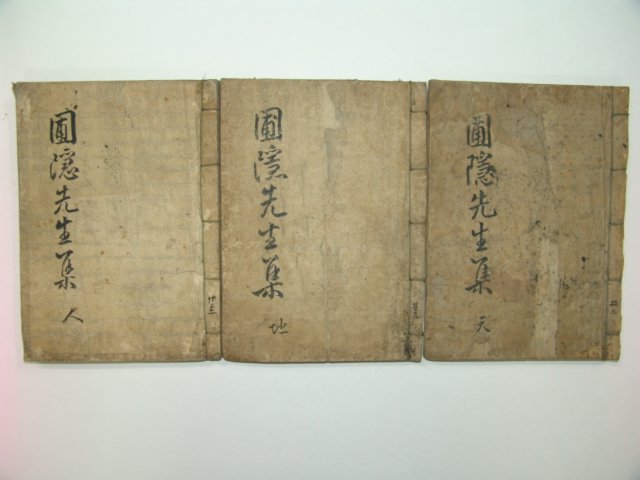 圃隱先生集
天
圃隱先生集
地
圃隱先生集
人
共三